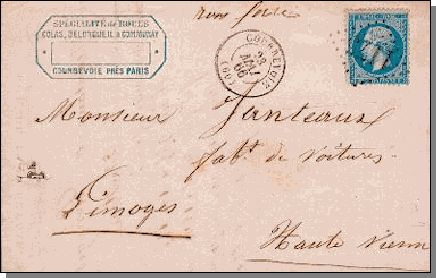 SPÉCIALITÉ DE ROUES
COLAS, DELONGUEIL & COMPAGNIE
COURBEVOIE PRÈS PARIS
COURBEVOIE
28
(60)
Monsieur Janteaux
fabt. de voitures
Limoges
Haute Vienne